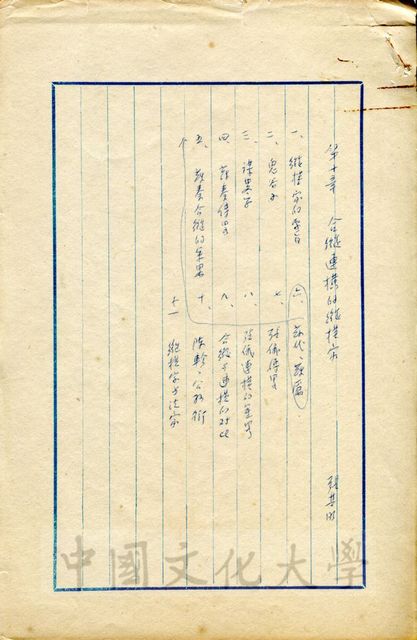 第十章 合縱連橫的縱橫家
張其昀
一、縱橫家的旨
二、鬼谷子
三、
四、蘇秦傳畧
五、蘇秦合縱的
六、蘇代、蘇厲
七、張儀傳畧
八、張儀連橫的
九、合縱與連橫的對比
十、陳軫、公孫衍
十一 縱橫家與法家
中國文化大學